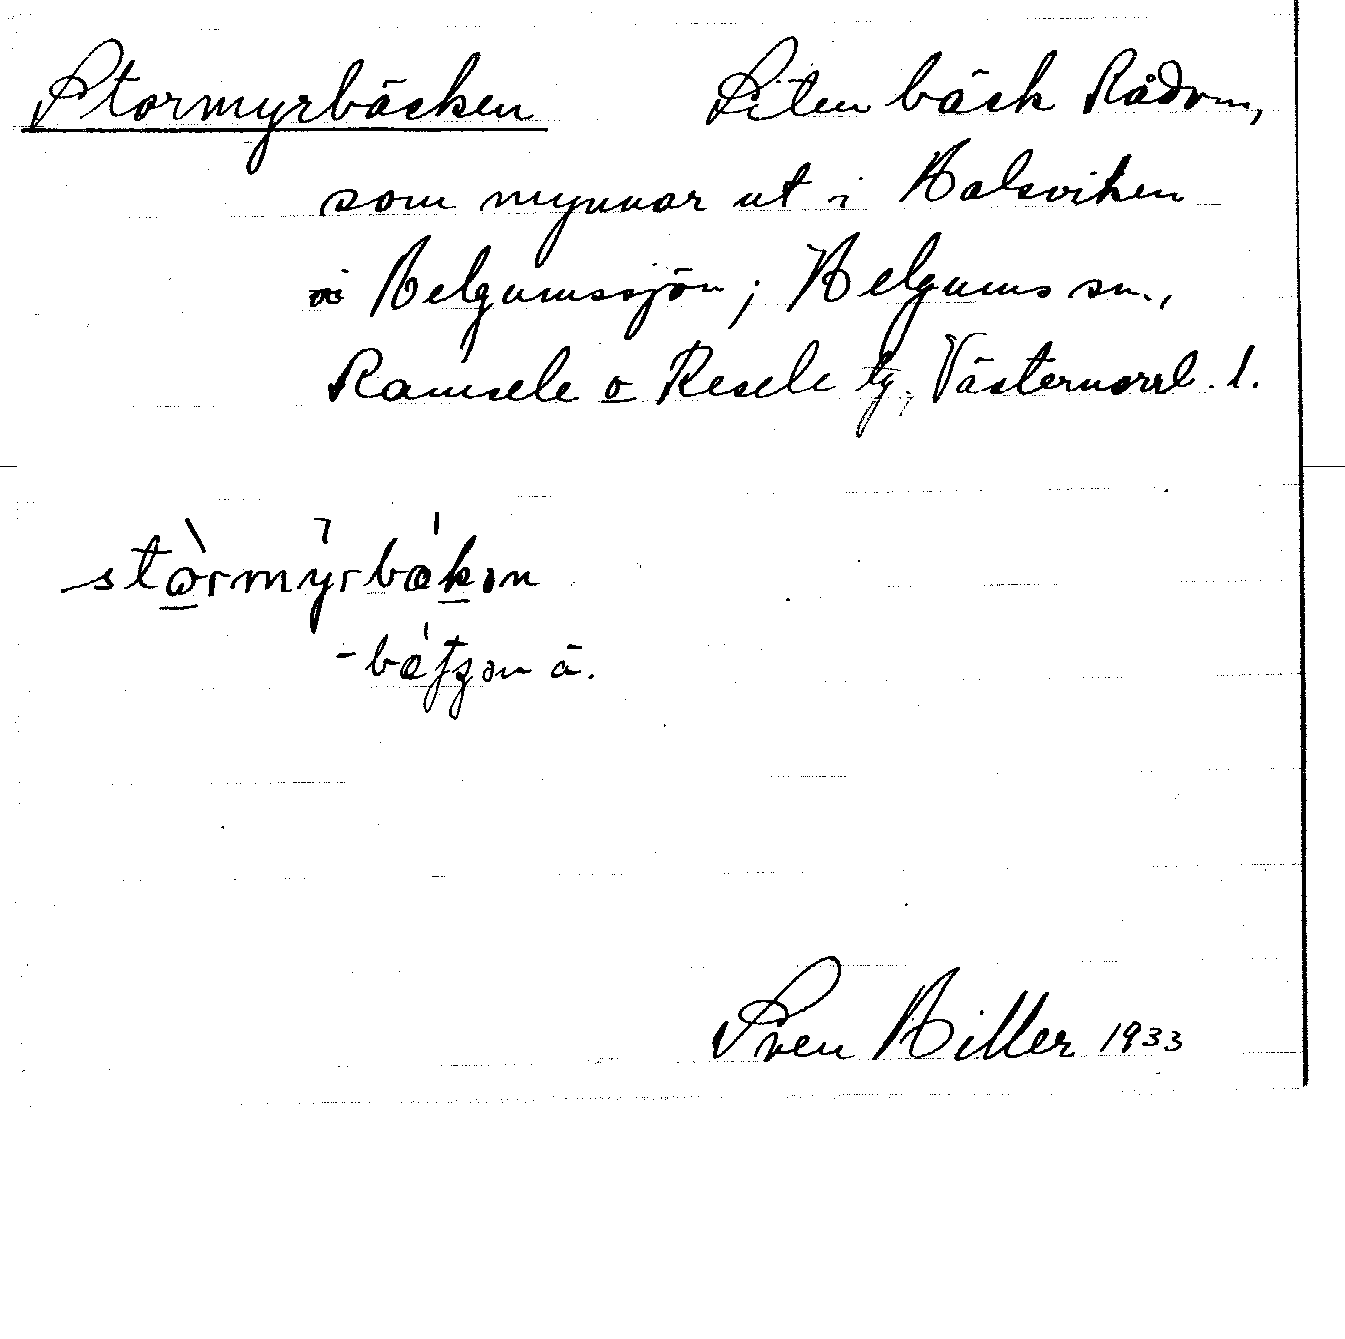 Stormyrbäcken Liten bäck Rådom,
som mynnar ut i Halsviken
i Helgumssjön; Helgums sn.,
Ramsele o Resele tg, Västernorrl. l.
stòrmȳrbækən
-bæ´tʃən ä.
Sven Hiller 1933